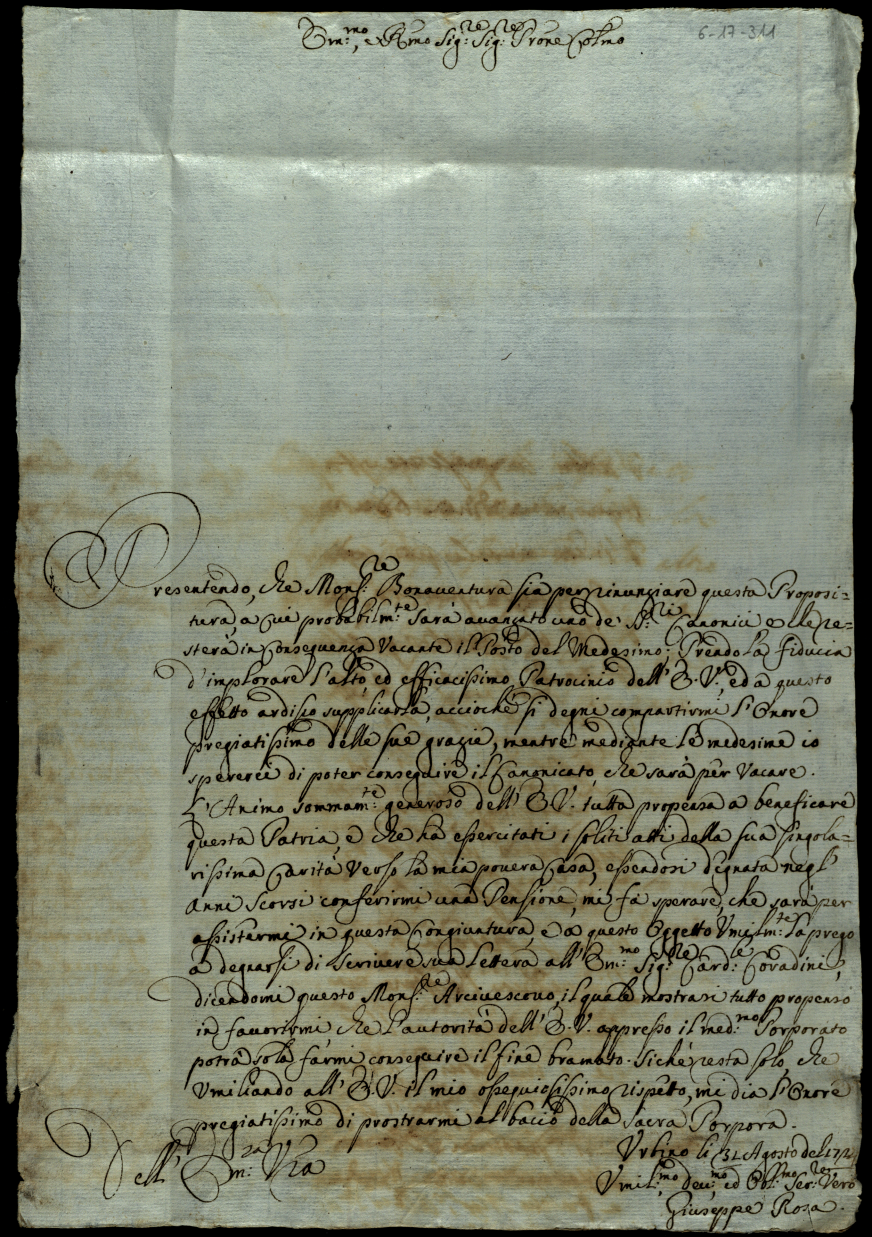 Em:mo, e Rmo Sig:re Sig:re Prone Colmo
6-17-311
Presentendo, che Mons:re Bonaventura sia per rinunziare questa Proposi=
tura, a cui probabilm:te sarà avanzato uno de' SS:ri Canonici e che re=
sterà in Conseguenza Vacante il Posto del Medesimo; Prendo la fiducia
d'implorare l'alto, ed efficacissimo Patrocinio dell'E.V., ed a questo
effetto ardisco supplicarla, accioché si degni compartirmi l'Onore
pregiatissimo delle sue grazie, mentre mediante le medesime io
spererei di poter conseguire il Canonicato, che sarà per Vacare.
L'Animo sommam:te generoso dell'E.V. tutta propensa a beneficare
questa Patria, e che ha essercitati i soliti atti della sua singola=
rissima Carità verso la mia povera Casa, essendosi degnata negl'
anni scorsi conferirmi una Pensione, mi fà sperare, che sarà per
assistermi in questa Congiuntura, e a questo Oggetto Vmilm:te la prego
a degnarsi di scrivere sua lettera all'Em:mo Sig:re Card:le Coradini,
dicendomi questo Mons:re Arcivescovo, il quale mostrasi tutto propenso
in favorirmi che l'autorità dell'E.V. appresso il med:mo Porporato
potrà sola farmi conseguire il fine bramato. Siché resta solo, che
Vmiliando all'E.V. il mio ossequiosissimo rispetto, mi dia l'Onore
pregiatissimo di prostrarmi al bacio della Sacra Porpora.
Dell'Em:za Vra
Vrbino li 31 Agosto del
Vmil:mo deu:mo ed Obl:mo Ser:re Vero
Giuseppe Rosa.